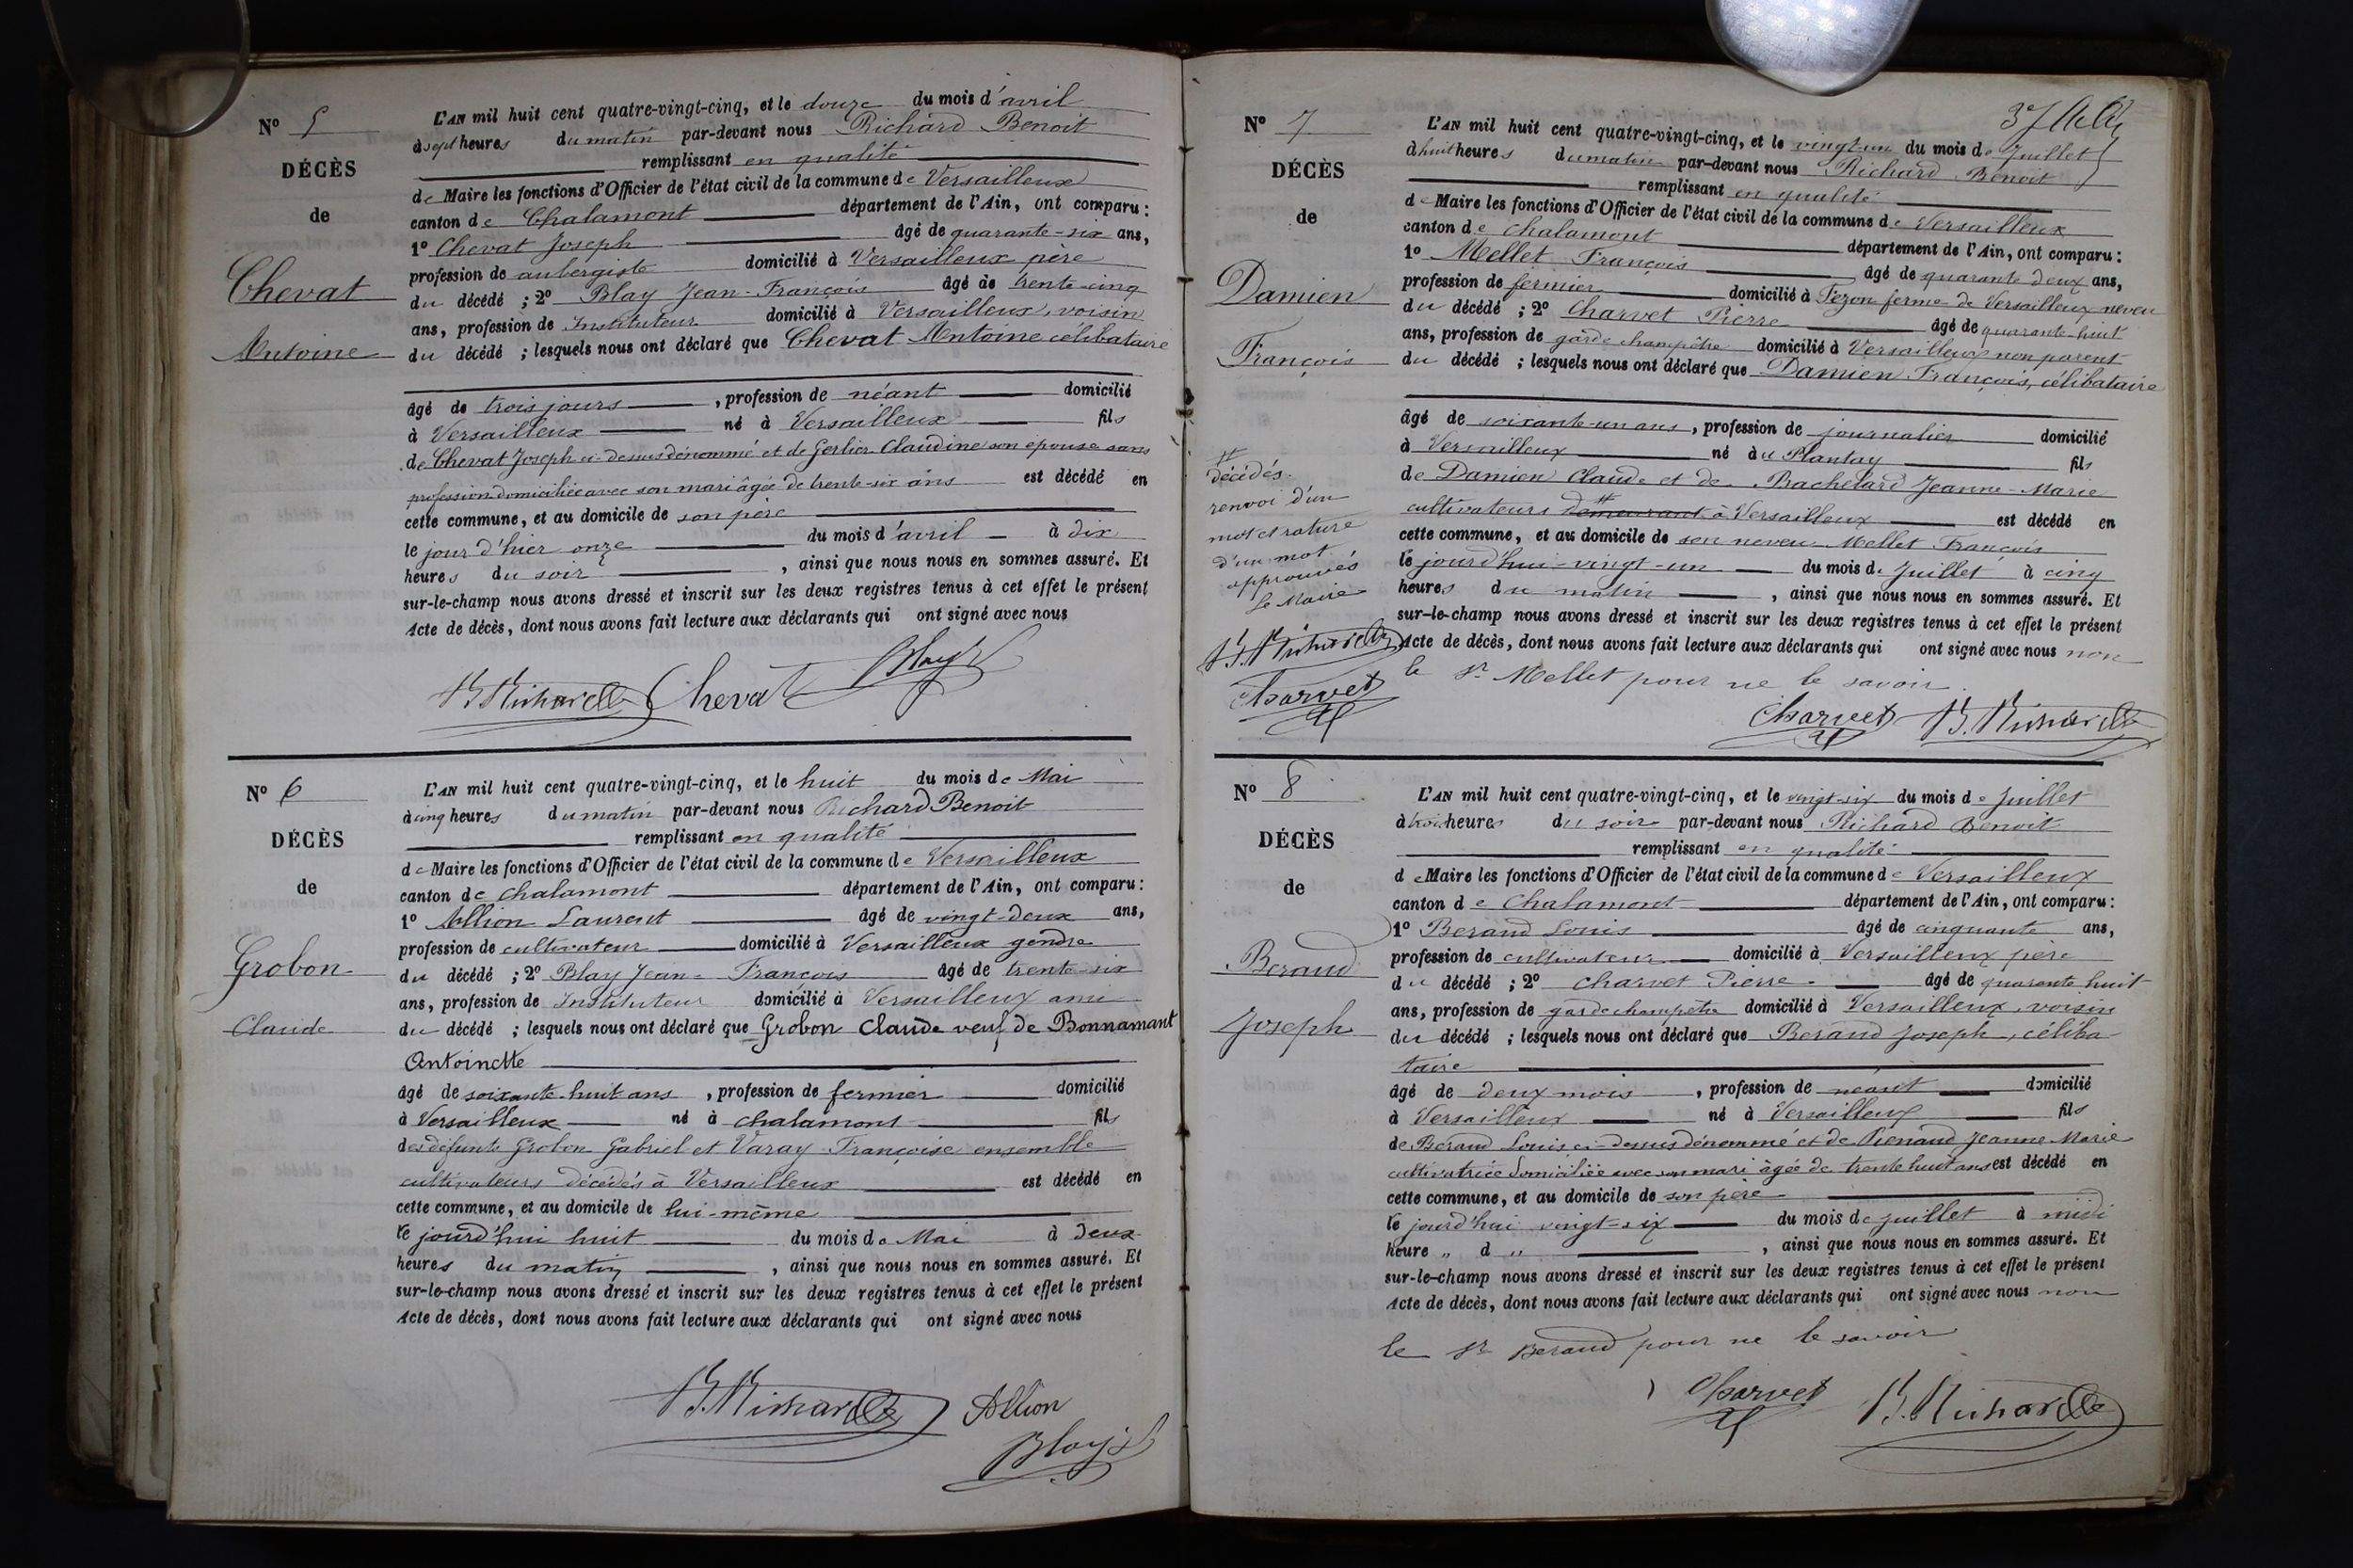 N° 5
DÉCÈS
de
Chevat
Antoine
L'AN mil huit cent quatre-vingt-cinq, et le douze du mois d'avril
à sept heures du matin par-devant nous Richard Benoit
remplissant en qualité
de Maire les fonctions d'Officier de l'état civil de la commune de Versailleux
canton de Chalamont département de l'Ain, ont comparu :
1° Chevat Joseph âgé de quarante-six ans,
profession de aubergiste domicilié à Versailleux père
du décédé ; 2° Blay Jean-François âgé de trente-cinq
ans, profession de Instituteur domicilié à Versailleux, voisin
du décédé ; lesquels nous ont déclaré que Chevat Antoine célibataire
âgé de trois jours, profession de néant domicilié
à Versailleux né à Versailleux fils
de Chevat Joseph ci-dessus dénommé et de Gerlier Claudine son épouse sans
profession domiciliée avec son mari âgée de trente-six ans est décédé en
cette commune, et au domicile de son père
le jour d'hier onze du mois d'avril à dix
heures du soir, ainsi que nous nous en sommes assuré. Et
sur-le-champ nous avons dressé et inscrit sur les deux registres tenus à cet effet le présent
Acte de décès, dont nous avons fait lecture aux déclarants qui ont signé avec nous
B. Richard Chevat Blay
N° 6
DÉCÈS
de
Grobon
Claude
L'AN mil huit cent quatre-vingt-cinq, et le huit du mois de Mai
à cinq heures du matin par-devant nous Richard Benoit
remplissant en qualité
de Maire les fonctions d'Officier de l'état civil de la commune de Versailleux
canton de Chalamont département de l'Ain, ont comparu :
1° Allion Laurent âgé de vingt-deux ans,
profession de cultivateur domicilié à Versailleux gendre
du décédé ; 2° Blay Jean-François âgé de trente-six
ans, profession de Instituteur domicilié à Versailleux ami
du décédé ; lesquels nous ont déclaré que Grobon Claude veuf de Bonnamant
Antoinette
âgé de soixante-huit ans, profession de fermier domicilié
à Versailleux né à Chalamont fils
des défunts Grobon Gabriel et Varay Françoise ensemble
cultivateurs décédés à Versailleux est décédé en
cette commune, et au domicile de lui-même
le jourd'hui huit du mois de Mai à deux
heures du matin, ainsi que nous nous en sommes assuré. Et
sur-le-champ nous avons dressé et inscrit sur les deux registres tenus à cet effet le présent
Acte de décès, dont nous avons fait lecture aux déclarants qui ont signé avec nous
B. Richard Allion
Blay
37
N° 7
DÉCÈS
de
Damien
François
L'AN mil huit cent quatre-vingt-cinq, et le vingt-un du mois de Juillet
à huit heures du matin par-devant nous Richard Benoit
remplissant en qualité
de Maire les fonctions d'Officier de l'état civil de la commune de Versailleux
canton de Chalamont département de l'Ain, ont comparu :
1° Mellet François âgé de quarante deux ans,
profession de fermier domicilié à Fezon ferme de Versailleux neveu
du décédé ; 2° Charvet Pierre âgé de quarante-huit
ans, profession de garde champêtre domicilié à Versailleux non parent
du décédé ; lesquels nous ont déclaré que Damien François, célibataire
âgé de soixante-un ans, profession de journalier domicilié
à Versailleux né au Plantay fils
de Damien Claude et de Bachelard Jeanne-Marie
cultivateurs demeurant # à Versailleux est décédé en
cette commune, et au domicile de son neveu Mellet François
le jourd'hui vingt-un du mois de Juillet à cinq
heures du matin, ainsi que nous nous en sommes assuré. Et
sur-le-champ nous avons dressé et inscrit sur les deux registres tenus à cet effet le présent
Acte de décès, dont nous avons fait lecture aux déclarants qui ont signé avec nous non
le Sr Mellet pour ne le savoir.
Charvet B. Richard
#
décédés.
renvoi d'un
mot et rature
d'un mot
approuvés
Le Maire
B. Richard
Charvet
N° 8
DÉCÈS
de
Beraud
Joseph
L'AN mil huit cent quatre-vingt-cinq, et le vingt-six du mois de Juillet
à trois heures du soir par-devant nous Richard Benoit
remplissant en qualité
de Maire les fonctions d'Officier de l'état civil de la commune de Versailleux
canton de Chalamont département de l'Ain, ont comparu :
1° Beraud Louis âgé de cinquante ans,
profession de cultivateur domicilié à Versailleux père
du décédé ; 2° Charvet Pierre âgé de quarante huit
ans, profession de garde champêtre domicilié à Versailleux, voisin
du décédé ; lesquels nous ont déclaré que Beraud Joseph, céliba
taire
âgé de deux mois, profession de néant domicilié
à Versailleux né à Versailleux fils
de Beraud Louis ci-dessus dénommé et de Renaud Jeanne Marie
cultivatrice domiciliée avec son mari âgée de trente huit ans est décédé en
cette commune, et au domicile de son père
le jourd'hui vingt-six du mois de juillet à midi
heure " d ", ainsi que nous nous en sommes assuré. Et
sur-le-champ nous avons dressé et inscrit sur les deux registres tenus à cet effet le présent
Acte de décès, dont nous avons fait lecture aux déclarants qui ont signé avec nous non
le Sr Beraud pour ne le savoir
Charvet B. Richard